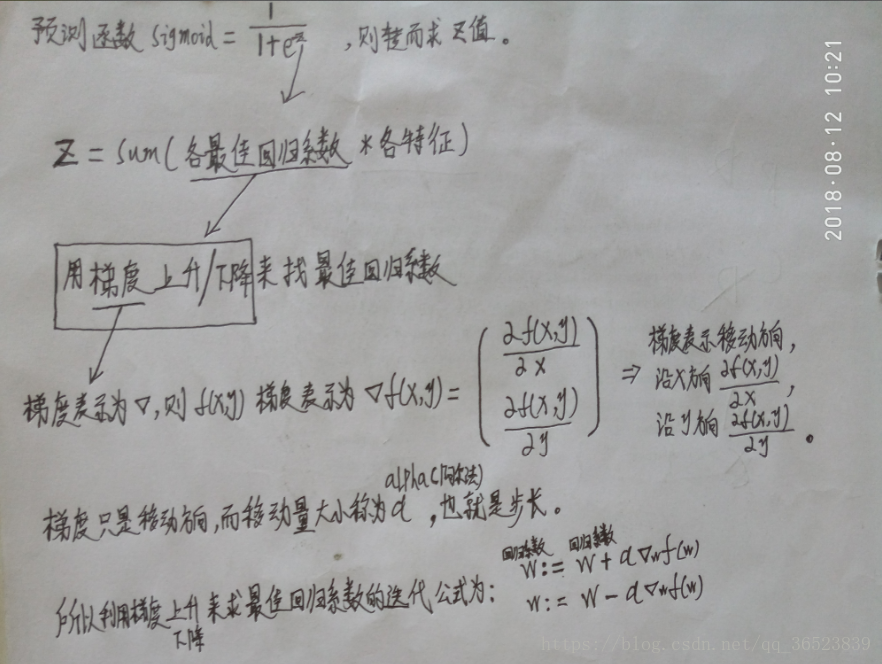 预测函数 sigmoid = 1/(1+e^z) ,则转而求Z值。
2018·08·12 10:21
Z = sum(各最佳回归系数 * 各特征)
用梯度上升/下降来找最佳回归系数
梯度表示为▽,则 f(x,y) 梯度表示为 ▽f(x,y) = ( ∂f(x,y)/∂x ∂f(x,y)/∂y ) ⇒
梯度表示移动方向,
沿X方向 ∂f(x,y)/∂x ,
沿y方向 ∂f(x,y)/∂y 。
alpha(阿尔法)
梯度只是移动方向,而移动量大小称为α ,也就是步长。
回归系数 回归系数
所以利用梯度上升来求最佳回归系数的迭代公式为: w := w + α▽wf(w)
下降 w := w - α▽wf(w)
https://blog.csdn.net/qq_36523839